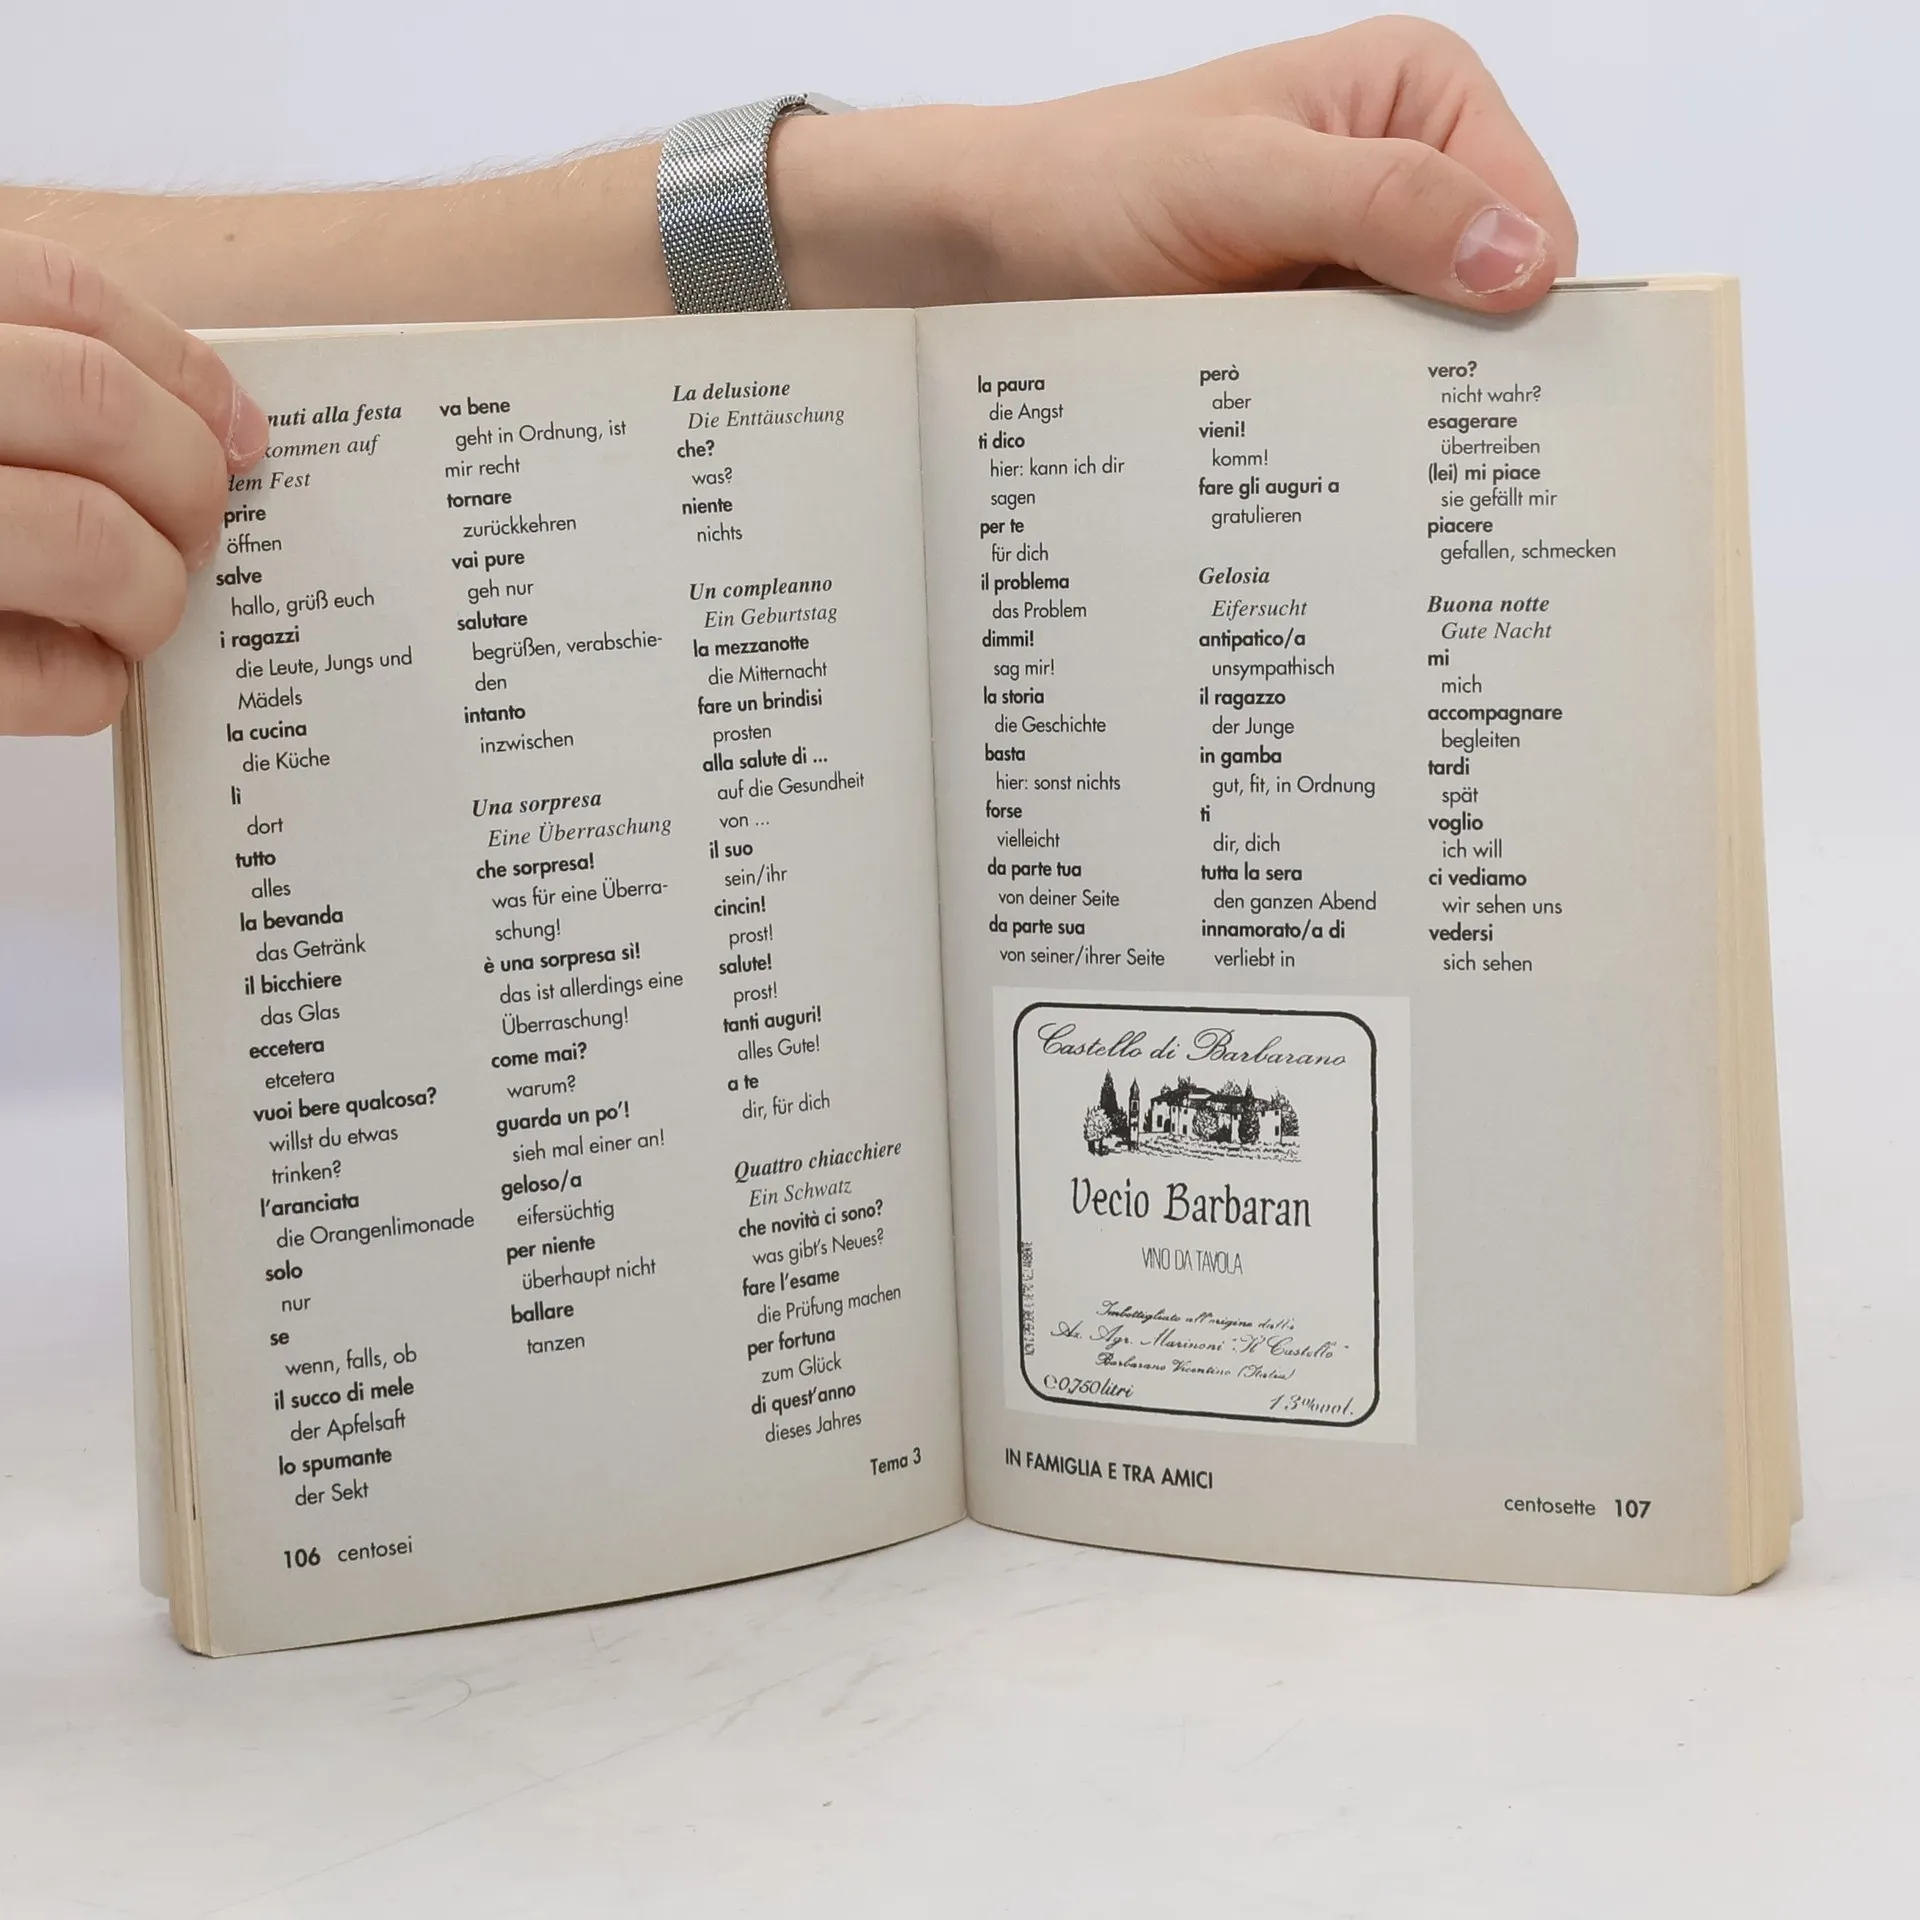 nuti alla festa
kommen auf
dem Fest
prire
öffnen
salve
hallo, grüß euch
i ragazzi
die Leute, Jungs und
Mädels
la cucina
die Küche
lì
dort
tutto
alles
la bevanda
das Getränk
il bicchiere
das Glas
eccetera
etcetera
vuoi bere qualcosa?
willst du etwas
trinken?
l'aranciata
die Orangenlimonade
solo
nur
se
wenn, falls, ob
il succo di mele
der Apfelsaft
lo spumante
der Sekt
va bene
geht in Ordnung, ist
mir recht
tornare
zurückkehren
vai pure
geh nur
salutare
begrüßen, verabschie-
den
intanto
inzwischen
Una sorpresa
Eine Überraschung
che sorpresa!
was für eine Überra-
schung!
è una sorpresa sì!
das ist allerdings eine
Überraschung!
come mai?
warum?
guarda un po'!
sieh mal einer an!
geloso/a
eifersüchtig
per niente
überhaupt nicht
ballare
tanzen
La delusione
Die Enttäuschung
che?
was?
niente
nichts
Un compleanno
Ein Geburtstag
la mezzanotte
die Mitternacht
fare un brindisi
prosten
alla salute di ...
auf die Gesundheit
von ...
il suo
sein/ihr
cincin!
prost!
salute!
prost!
tanti auguri!
alles Gute!
a te
dir, für dich
Quattro chiacchiere
Ein Schwatz
che novità ci sono?
was gibt's Neues?
fare l'esame
die Prüfung machen
per fortuna
zum Glück
di quest'anno
dieses Jahres
Tema 3
106 centosei
la paura
die Angst
ti dico
hier: kann ich dir
sagen
per te
für dich
il problema
das Problem
dimmi!
sag mir!
la storia
die Geschichte
basta
hier: sonst nichts
forse
vielleicht
da parte tua
von deiner Seite
da parte sua
von seiner/ihrer Seite
però
aber
vieni!
komm!
fare gli auguri a
gratulieren
Gelosia
Eifersucht
antipatico/a
unsympathisch
il ragazzo
der Junge
in gamba
gut, fit, in Ordnung
ti
dir, dich
tutta la sera
den ganzen Abend
innamorato/a di
verliebt in
vero?
nicht wahr?
esagerare
übertreiben
(lei) mi piace
sie gefällt mir
piacere
gefallen, schmecken
Buona notte
Gute Nacht
mi
mich
accompagnare
begleiten
tardi
spät
voglio
ich will
ci vediamo
wir sehen uns
vedersi
sich sehen
Castello di Barbarano
Vecio Barbaran
VINO DA TAVOLA
Imbottigliato all'origine dalla
Az. Agr. Marinoni "Il Castello"
Barbarano Vicentino (Italia)
e 0,750 litri
13% vol.
IN FAMIGLIA E TRA AMICI
centosette 107